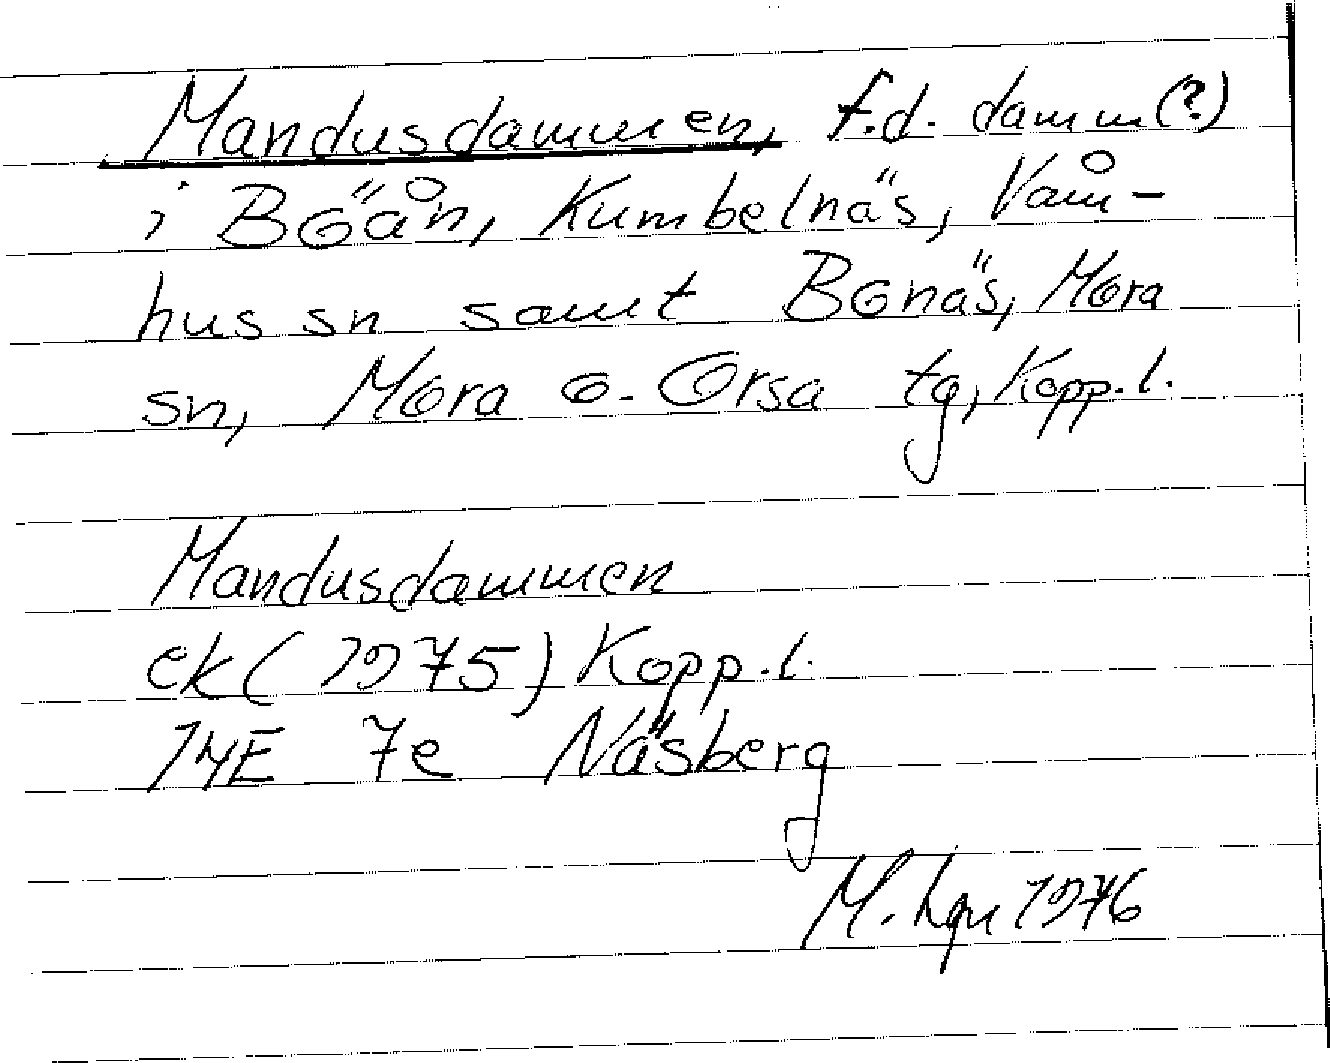 Mandusdammen, f.d. damm(?)
i Böån, Kumbelnäs, Våm-
hus sn samt Bonäs, Mora
sn, Mora o. Orsa tg, Kopp.l.
Mandusdammen
ek (1975) Kopp.l.
14E 7e Näsberg
M. 1976